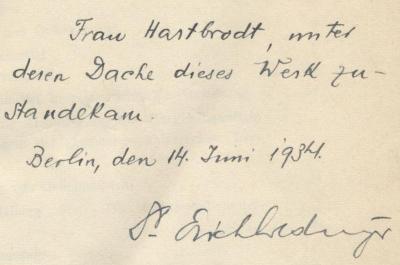 Frau Hartbrodt, unter
deren Dache dieses Werk zu-
standekam.
Berlin, den 14. Juni 1934.
Dr Erich